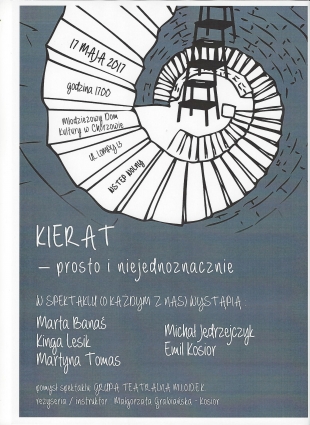 17 MAJA 2017
godzina 17.00
Młodzieżowy Dom
Kultury w Chorzowie
ul. Lompy 13
WSTĘP WOLNY
KIERAT
– prosto i niejednoznacznie
W SPEKTAKLU (O KAŻDYM Z NAS) WYSTĄPIĄ
Marta Banaś
Kinga Lesik
Martyna Tomas
Michał Jędrzejczyk
Emil Kosior
pomysł spektaklu GRUPA TEATRALNA MŁODEK
reżyseria / instruktor Małgorzata Grabowska - Kosior